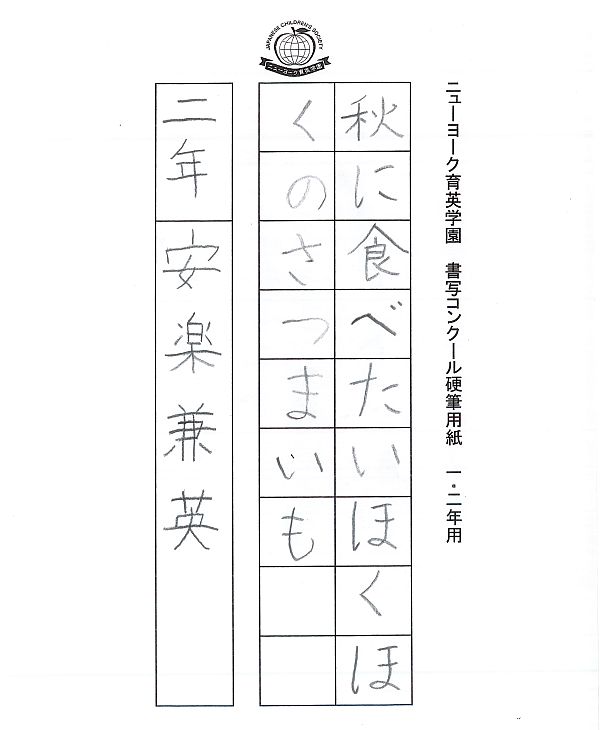 JAPANESE CHILDREN'S SOCIETY
ニューヨーク育英学園
ニューヨーク育英学園 書写コンクール硬筆用紙 一・二年用
秋に食べたいほくほ
くのさつまいも
二年 安楽兼英